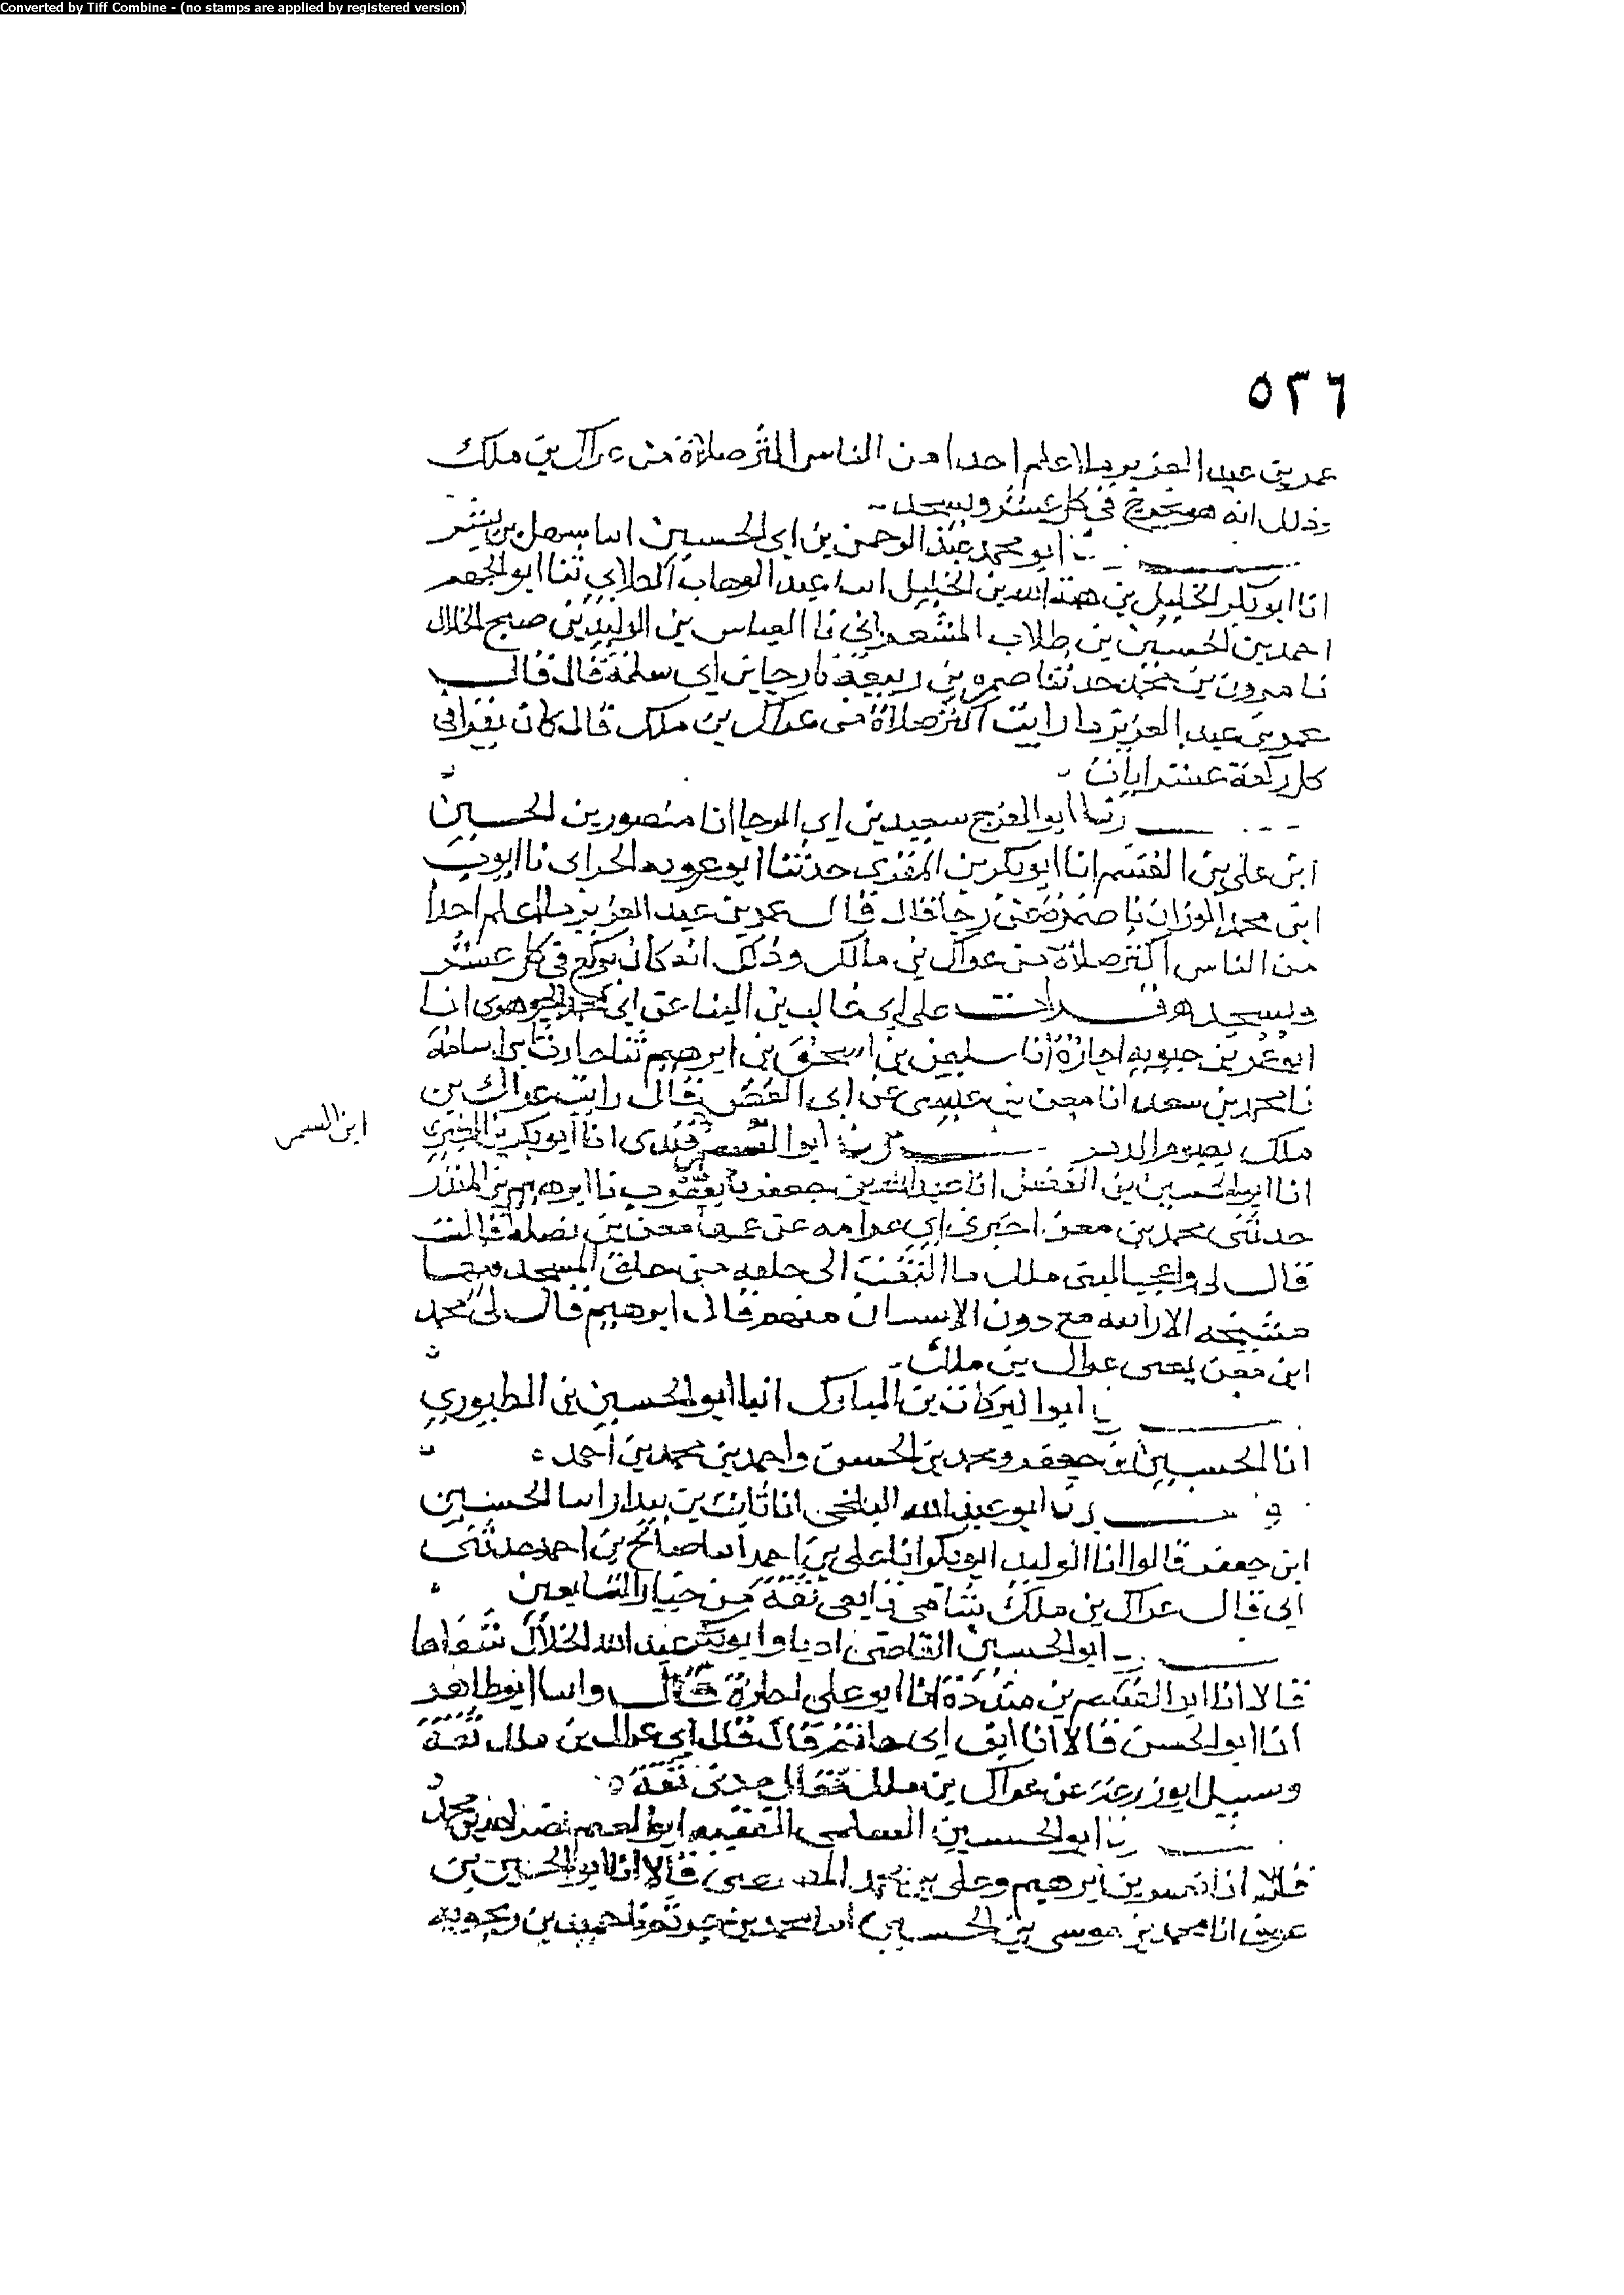 Converted by Tiff Combine - (no stamps are applied by registered version)
٥٣٦
عمر بن عبد العزيز ما اعلم احدا من الناس اكثر صلاة من عراك بن ملك
وذلك انه يركع في كل عشر ويسجد
ابو محمد عبد الرحمن بن ابي الحسين اسا سهل بن بشر
انا ابو بكر الخليل بن هبة الله بن الخليل اسا عبد الوهاب الكلابي ثنا ابو الجهم
احمد بن الحسين بن طلاب المشغراني نا العباس بن الوليد بن صبح الخلال
نا مرون بن محمد حدثنا ضمره بن ربيعة نا رجا بن ابي سلمة قال قال
عمر بن عبد العزيز ما رايت اكثر صلاة من عراك بن ملك قال كان يقرا في
كل ركعة عشر ايات
رنا ابو الفرج سعيد بن ابي الرجا انا منصور بن الحسين
ابن علي بن القسم انا ابو بكر بن المقري حدثنا ابو عروبه الحراني نا ايوب
ابن محمد الوزان نا ضمرة عن رجا قال قال عمر بن عبد العزيز ما اعلم احدا
من الناس اكثر صلاة من عراك بن مالك وذلك انه كان يركع في كل عشر
ويسجد ه قرات على ابي غالب بن البنا عن ابي محمد الجوهري انا
ابو عمر بن حيويه اجازة انا سليمن بن اسحق بن ابرهيم ثنا حارث بن ابي اسامة
نا محمد بن سعد انا معن بن عيسى عن ابي الغصن قال رايت عراك بن
ملك يصوم الدهر رنا ابو القسم قندى انا ابو بكر بن الطبري
ابن السمر
انا ابو الحسين بن الفضل انا عبد الله بن جعفر نا يعقوب نا ابرهيم بن المنذر
حدثني محمد بن معن اخبرني ابي عن امه عن عمها معن بن نضلة قالت
قال لي واعجبا لبني ملك ما التفت الى حلقه من حلق المسجد فيها
مشيخه الا رايته مع دون الاسنان منهم قال ابرهيم قال لي محمد
ابن معن يعني عراك بن ملك
ابو البركات بن المبارك انبا ابو الحسين بن الطيوري
انا الحسين بن جعفر ومحمد بن الحسن واحمد بن محمد بن احمد
و رنا ابو عبد الله البلخي انا ثابت بن بندار اسا الحسين
ابن جعفر قالوا انا الوليد ابو بكر انا علي بن احمد اسا صالح بن احمد حدثني
ابي قال عراك بن ملك شامي تابعي ثقة من خيار التابعين
ابو الحسين القاضي اذنا وابو عبد الله الخلال شفاها
قالا انا ابو القسم بن مندة انا ابو علي اجازة قال واسا ابو طاهر
انا ابو الحسن قالا انا ابن ابي حاتم قال قال ابي عراك بن ملك ثقة
وسيل ابو زرعة عن عراك بن ملك فقال مدني ثقة
رنا ابو الحسين السلمي الفقيه ابو نصر بن محمد
قالا انا نصر بن ابرهيم وعلي بن محمد المصيصي قالا انا ابو الحسين بن
عوف انا محمد بن موسى بن الحسين اسا محمد بن خريم نا حميد بن زنجويه